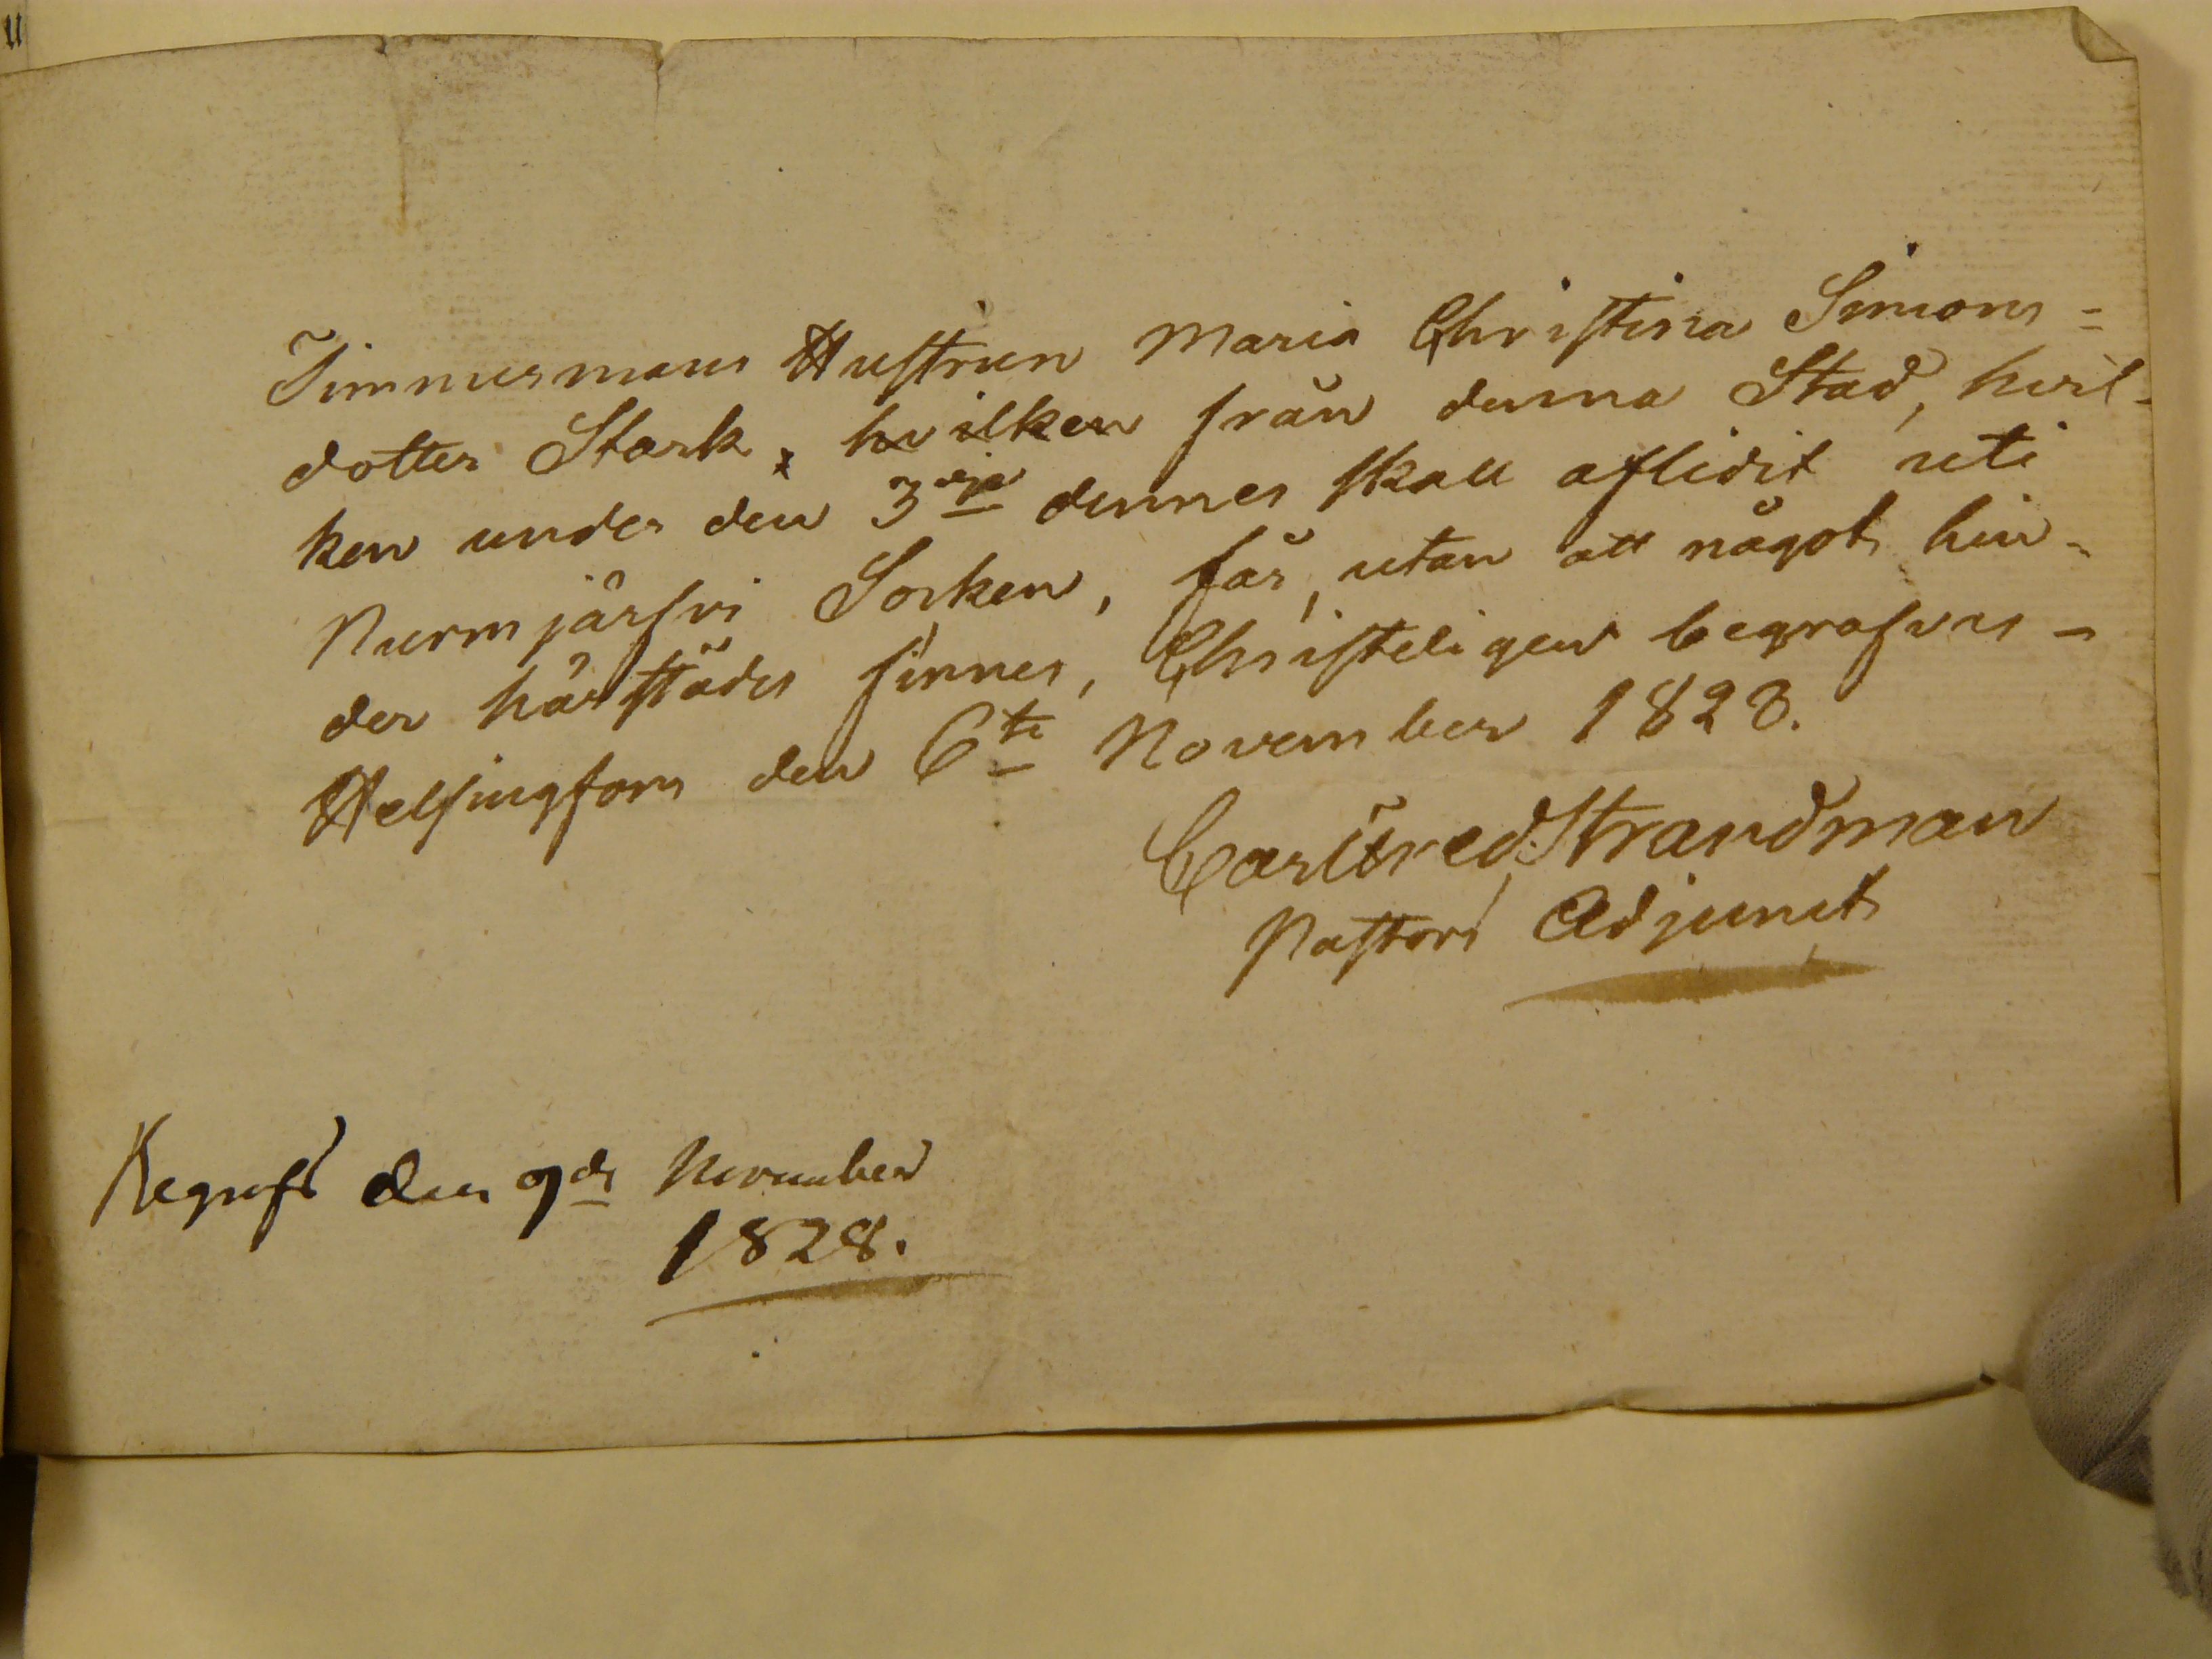 Timmermans Hustrun Maria Christina Simons=
dotter Stark, hvilken från denna Stad, hvil-
ken under den 3dje dennes skall aflidit uti
Nurmijärfvi Socken, får, utan att något hin-
der härstädes finnes, Christeligen begrafvas -
Helsingfors den 6te November 1828.
Carl Fred Strandman
Pastors Adjunct
Begrafd den 9de November
1828.